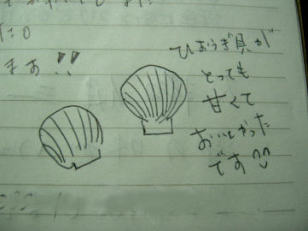 た。
まあ!!
ひおうぎ貝が
とっても
甘くて
おいしかった
です^^